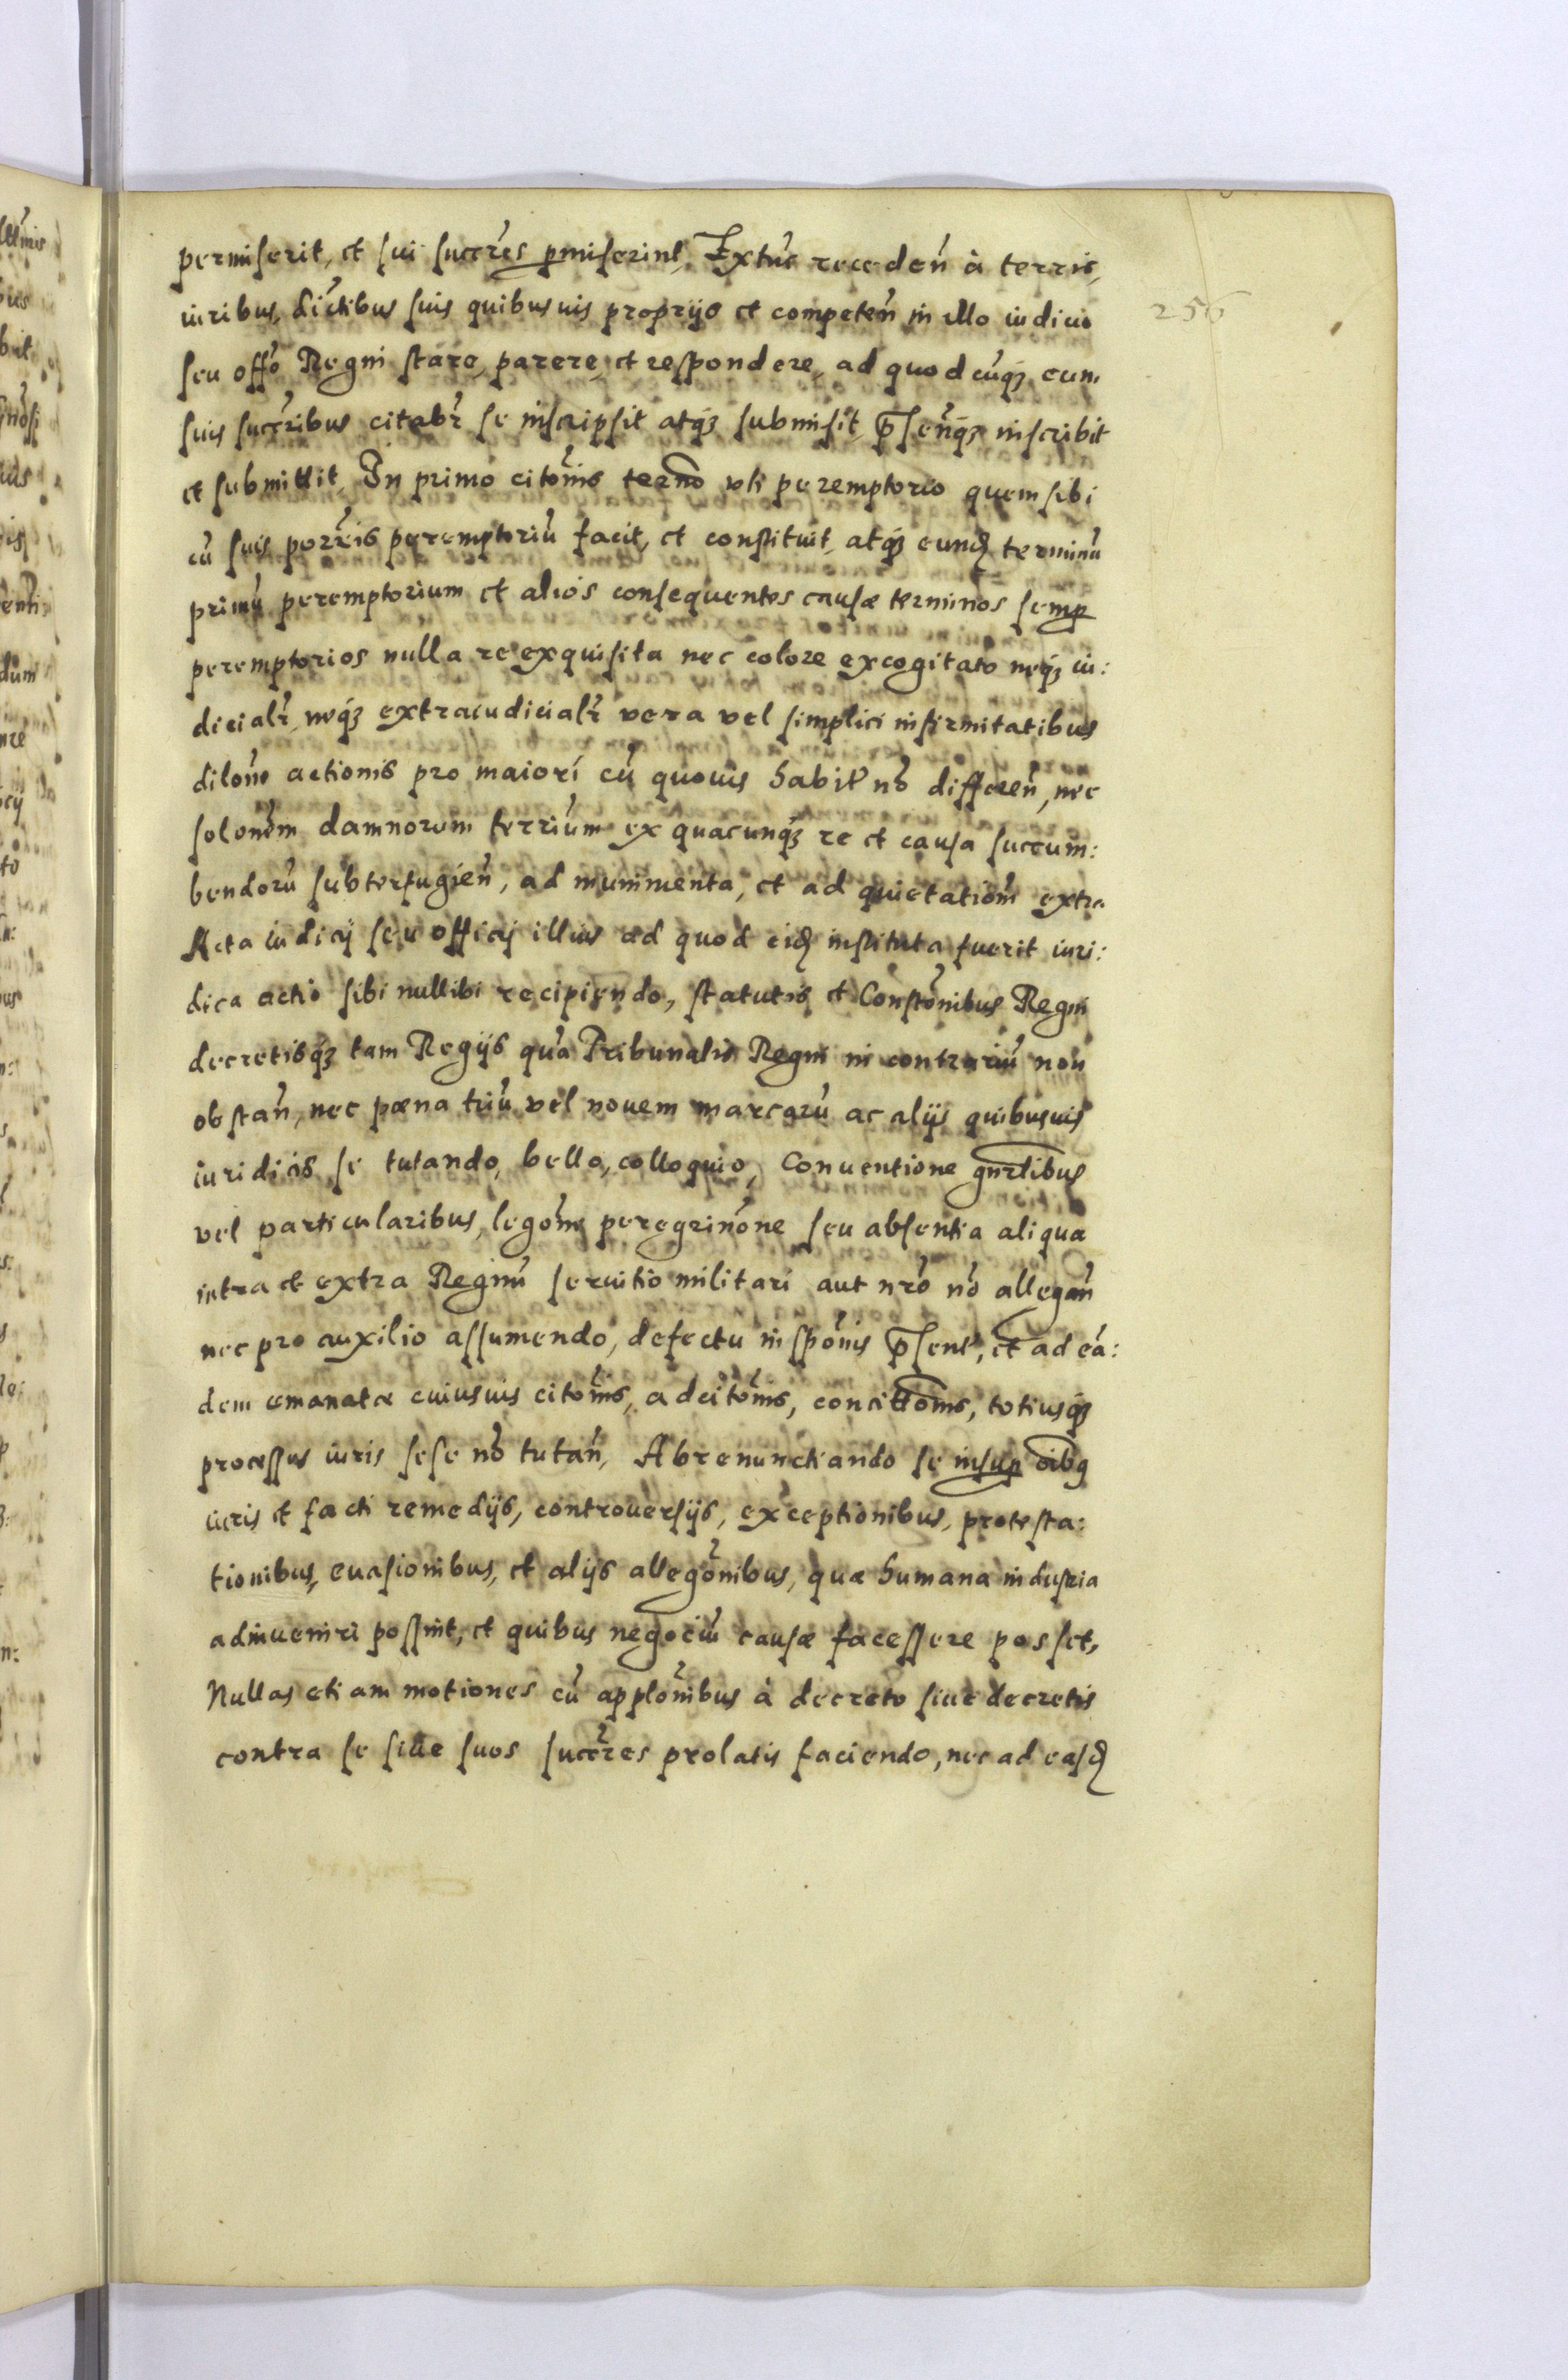 permiserit, et sui succr̃es p̱miserint, Extunc receden̄ à terris,
iuribus, districtibus suis quibusuis proprijs et competen̄ in illo iudicio
seu offō Regni stare, parere, et respondere, ad quodcunq₃ cum
suis succr̃ibus citabr̃ se inscripsit atq₃ submisit, p̄senq₃ inscribit
et submittit, In primo citōnis termō vti peremptorio quem sibi
cū suis peremptoriū facit, et constituit, atq₃ eund̃ terminū
primū peremptorium et alios consequentes causæ terminos semp̱
peremptorios nulla re exquisita nec colore excogitato neq₃ iu:
dicialr̃, neq₃ extraiudicialr̃ vera vel simplici infirmitatibus
dilōne actionis pro maiori cū quouis habit̃ nō differen̄, nec
solōnem damnorum terrium ex quacunq₃ re et causa succum:
bendorū subterfugien̄, ad munimenta, et ad quietatiōm extra
Acta iudicij seu officij illius ad quod eid̃ instituta fuerit iuri:
dica actio sibi nullibi recipiendo, statutis et Constōnibus Regni
decretisq₃ tam Regijs quā Tribunalis Regni in contrariū non
obstan̄, nec pœna triū vel nouem marcarū ac alijs quibusuis
iuridicis se tutando, bello, colloquio, Conuentione gnr̃libus
vel particularibus, legōne, peregrinōne seu absentia aliqua
intra et extra Regnū seruitio militari aut nr̃o nō allegan̄
nec pro auxilio assumendo, defectu insp̄onis p̄sent̃, et ad eā:
dem emanatæ cuiusuis citōnis, adcitōnis, concittōnis, totiusq₃
processus iuris sese nō tutan̄, Abrenunctiando se insup̱ oībq
iuris et facti remedijs, controuersijs, exceptionibus, protesta:
tionibus, euasionibus, et alijs allegōnibus, quæ humana industria
adinueniri possint, et quibus negociū causæ facessere posset,
Nullas etiam motiones cū applōnibus à decreto siue decretis
contra se siue suos succr̃es prolatis faciendo, nec ad easd̃
256